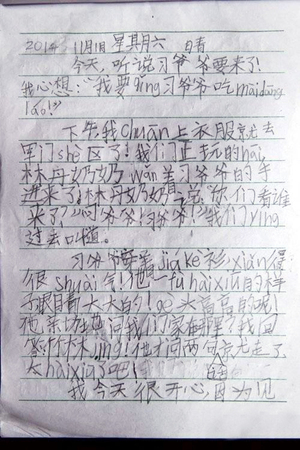 2014 11月1日 星期六 晴
今天,听说习爷爷要来了!
我心想:"我要qǐng习爷爷吃maidāng
láo!"
下午我chuān上衣服就去
军门shè区了!我们正玩的hǎi,
林丹奶奶wǎn着习爷爷的手
进来了!林丹奶奶说:"你们看谁
来了?"习爷爷!习爷爷!"我们yíng
过去叫道。
习爷爷穿着jiá kè衫xiǎn得
很shuài气!他一fù hǎixià的样
子眼睛大大的!go大高高的呢!
他亲切地问我们家住哪里?我回
答
他才问两句就走了
太hài xiū了吧!
我今天很开心,因为见